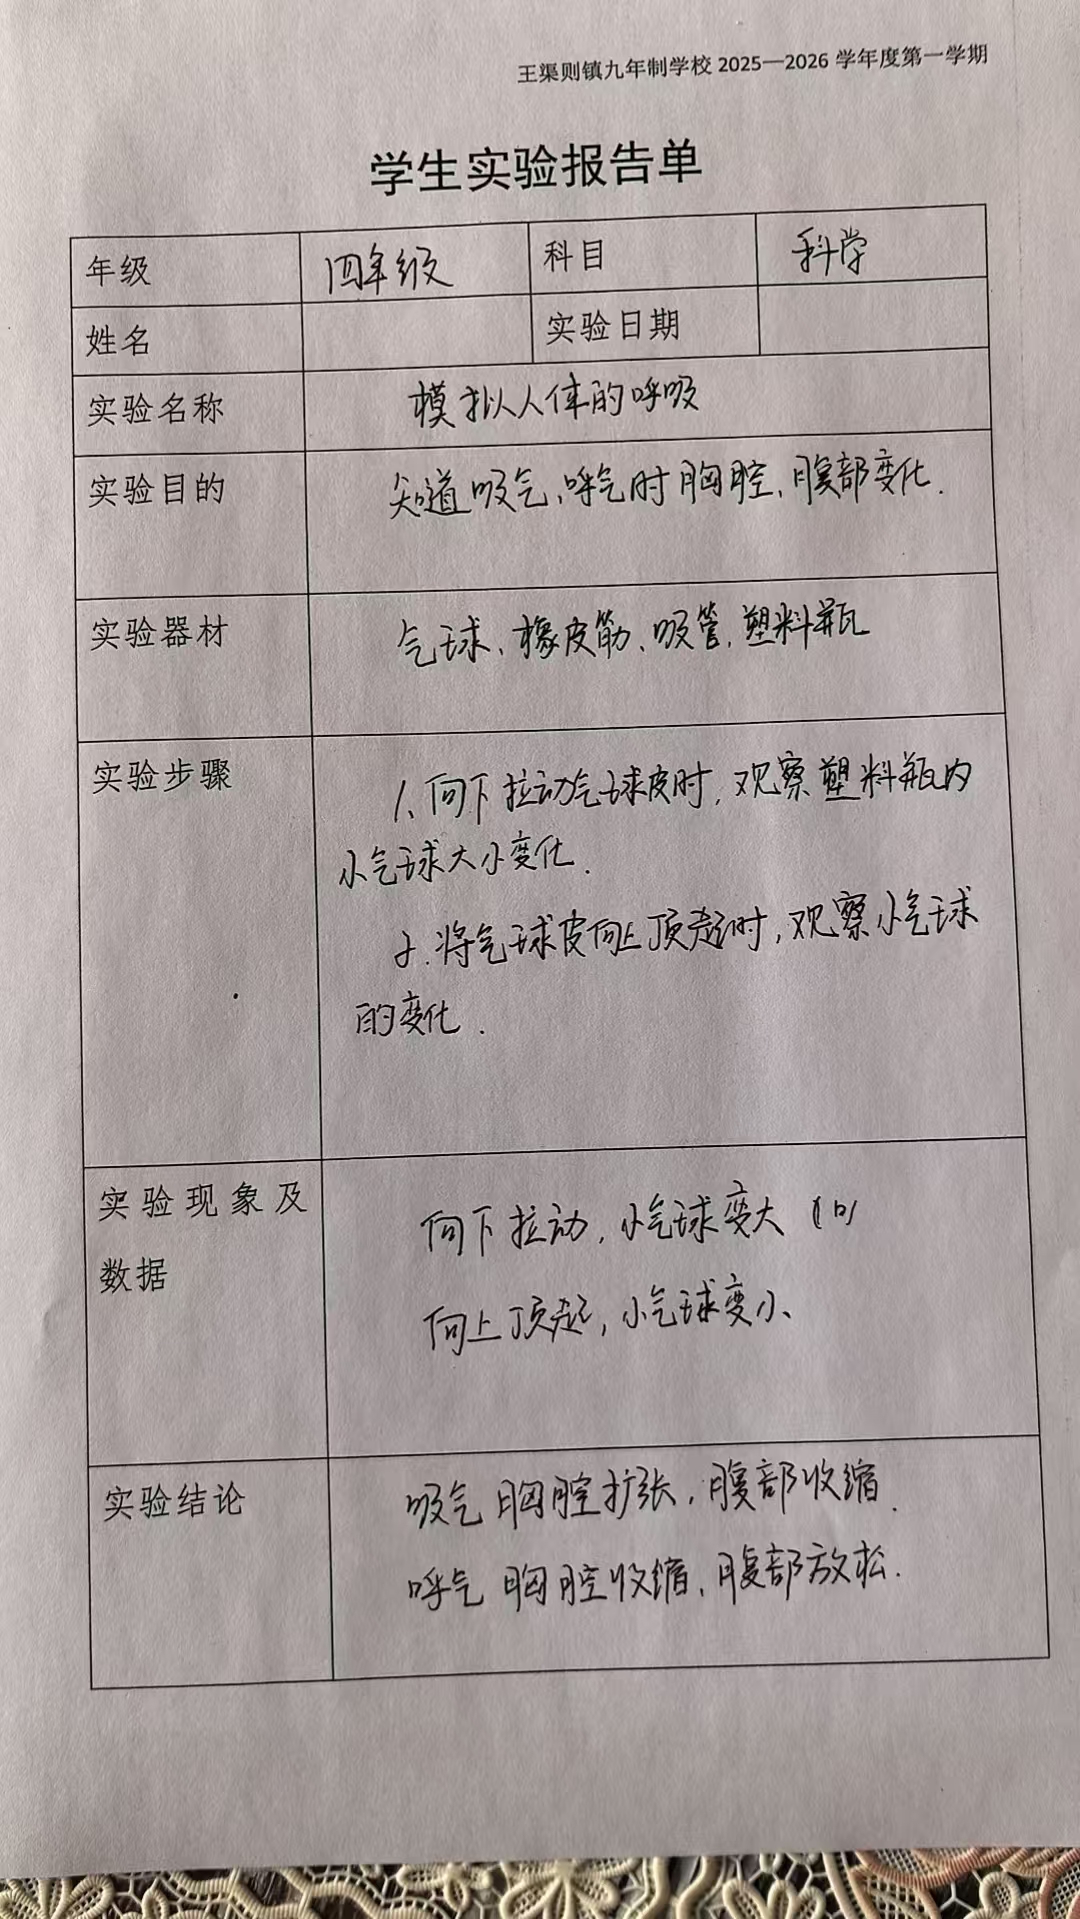 王渠则镇九年制学校 2025—2026 学年度第一学期
学生实验报告单
年级 四年级 科目 科学
姓名 实验日期
实验名称 模拟人体的呼吸
实验目的 知道吸气、呼气时胸腔、腹部变化.
实验器材 气球、橡皮筋、吸管、塑料瓶
实验步骤 1、向下拉动气球皮时,观察塑料瓶内
小气球大小变化.
2.将气球皮向上顶起时,观察小气球
的变化.
实验现象及 向下拉动,小气球变大
数据
向上顶起,小气球变小、
实验结论 吸气 胸腔扩张,腹部收缩.
呼气 胸腔收缩,腹部放松.